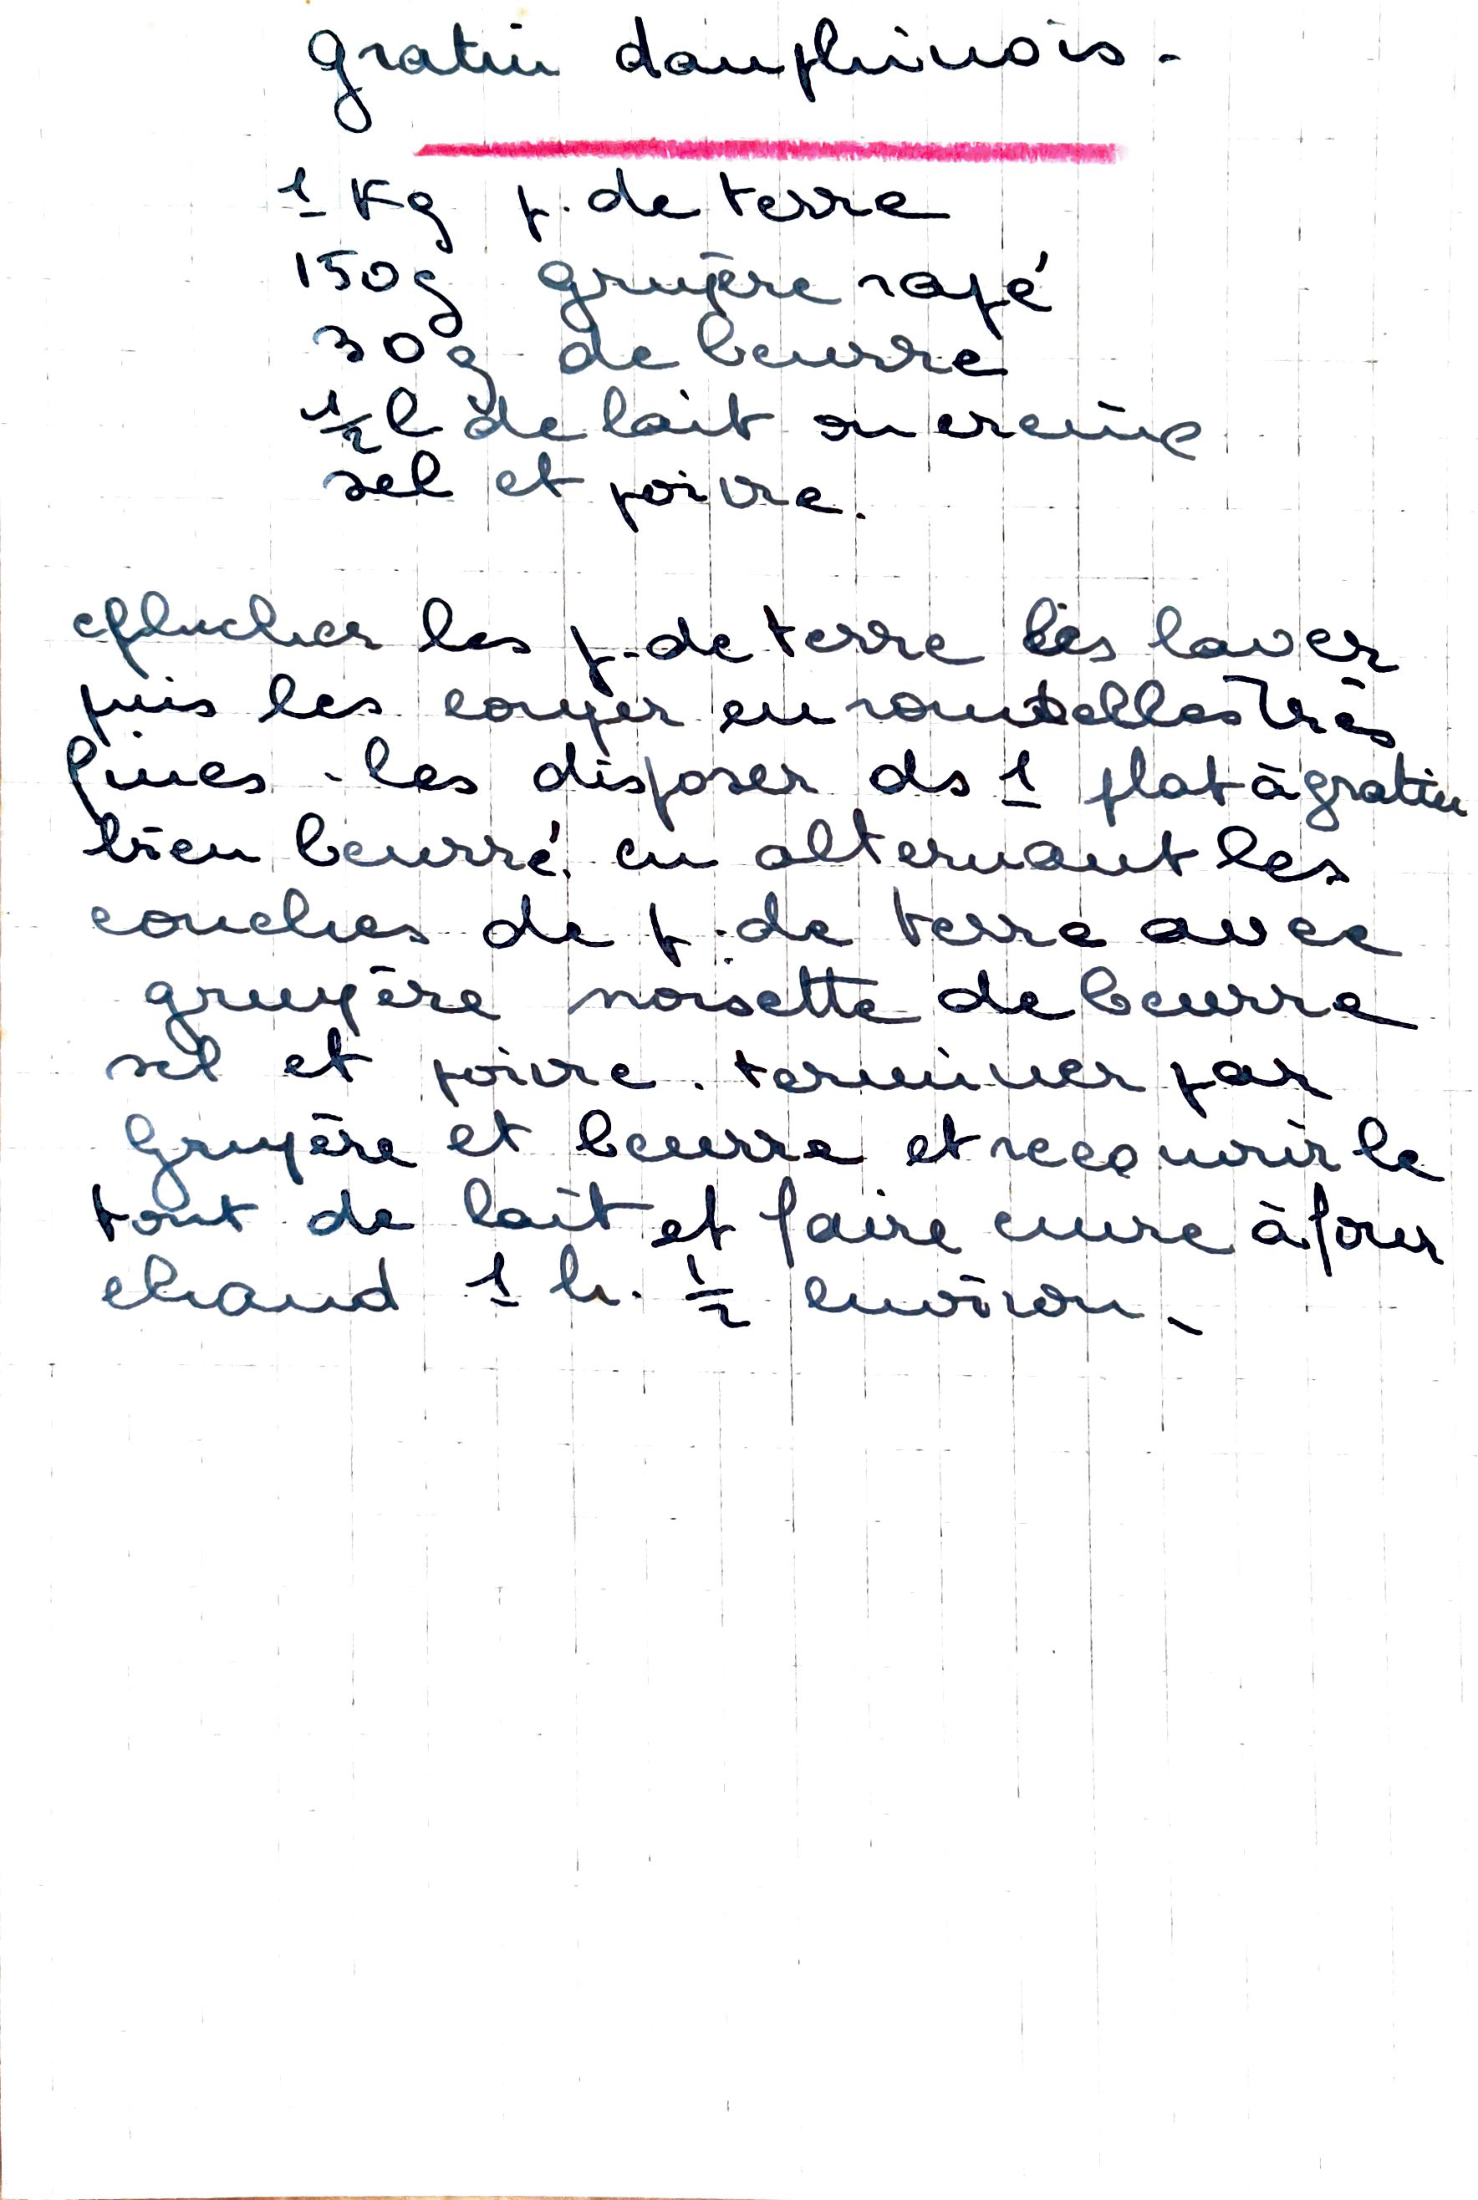 gratin dauphinois -
1 Kg p. de terre
150g gruyère rapé
30g de beurre
1/2 l de lait ou crème
sel et poivre.
eplucher les p. de terre les laver
puis les couper en rondelles très
fines - les disposer ds 1 plat à gratin
bien beurré. en alternant les
couches de p. de terre avec
gruyère noisette de beurre
sel et poivre. terminer par
gruyère et beurre et recouvrir le
tout de lait et faire cuire à four
chaud 1 h. 1/2 environ.